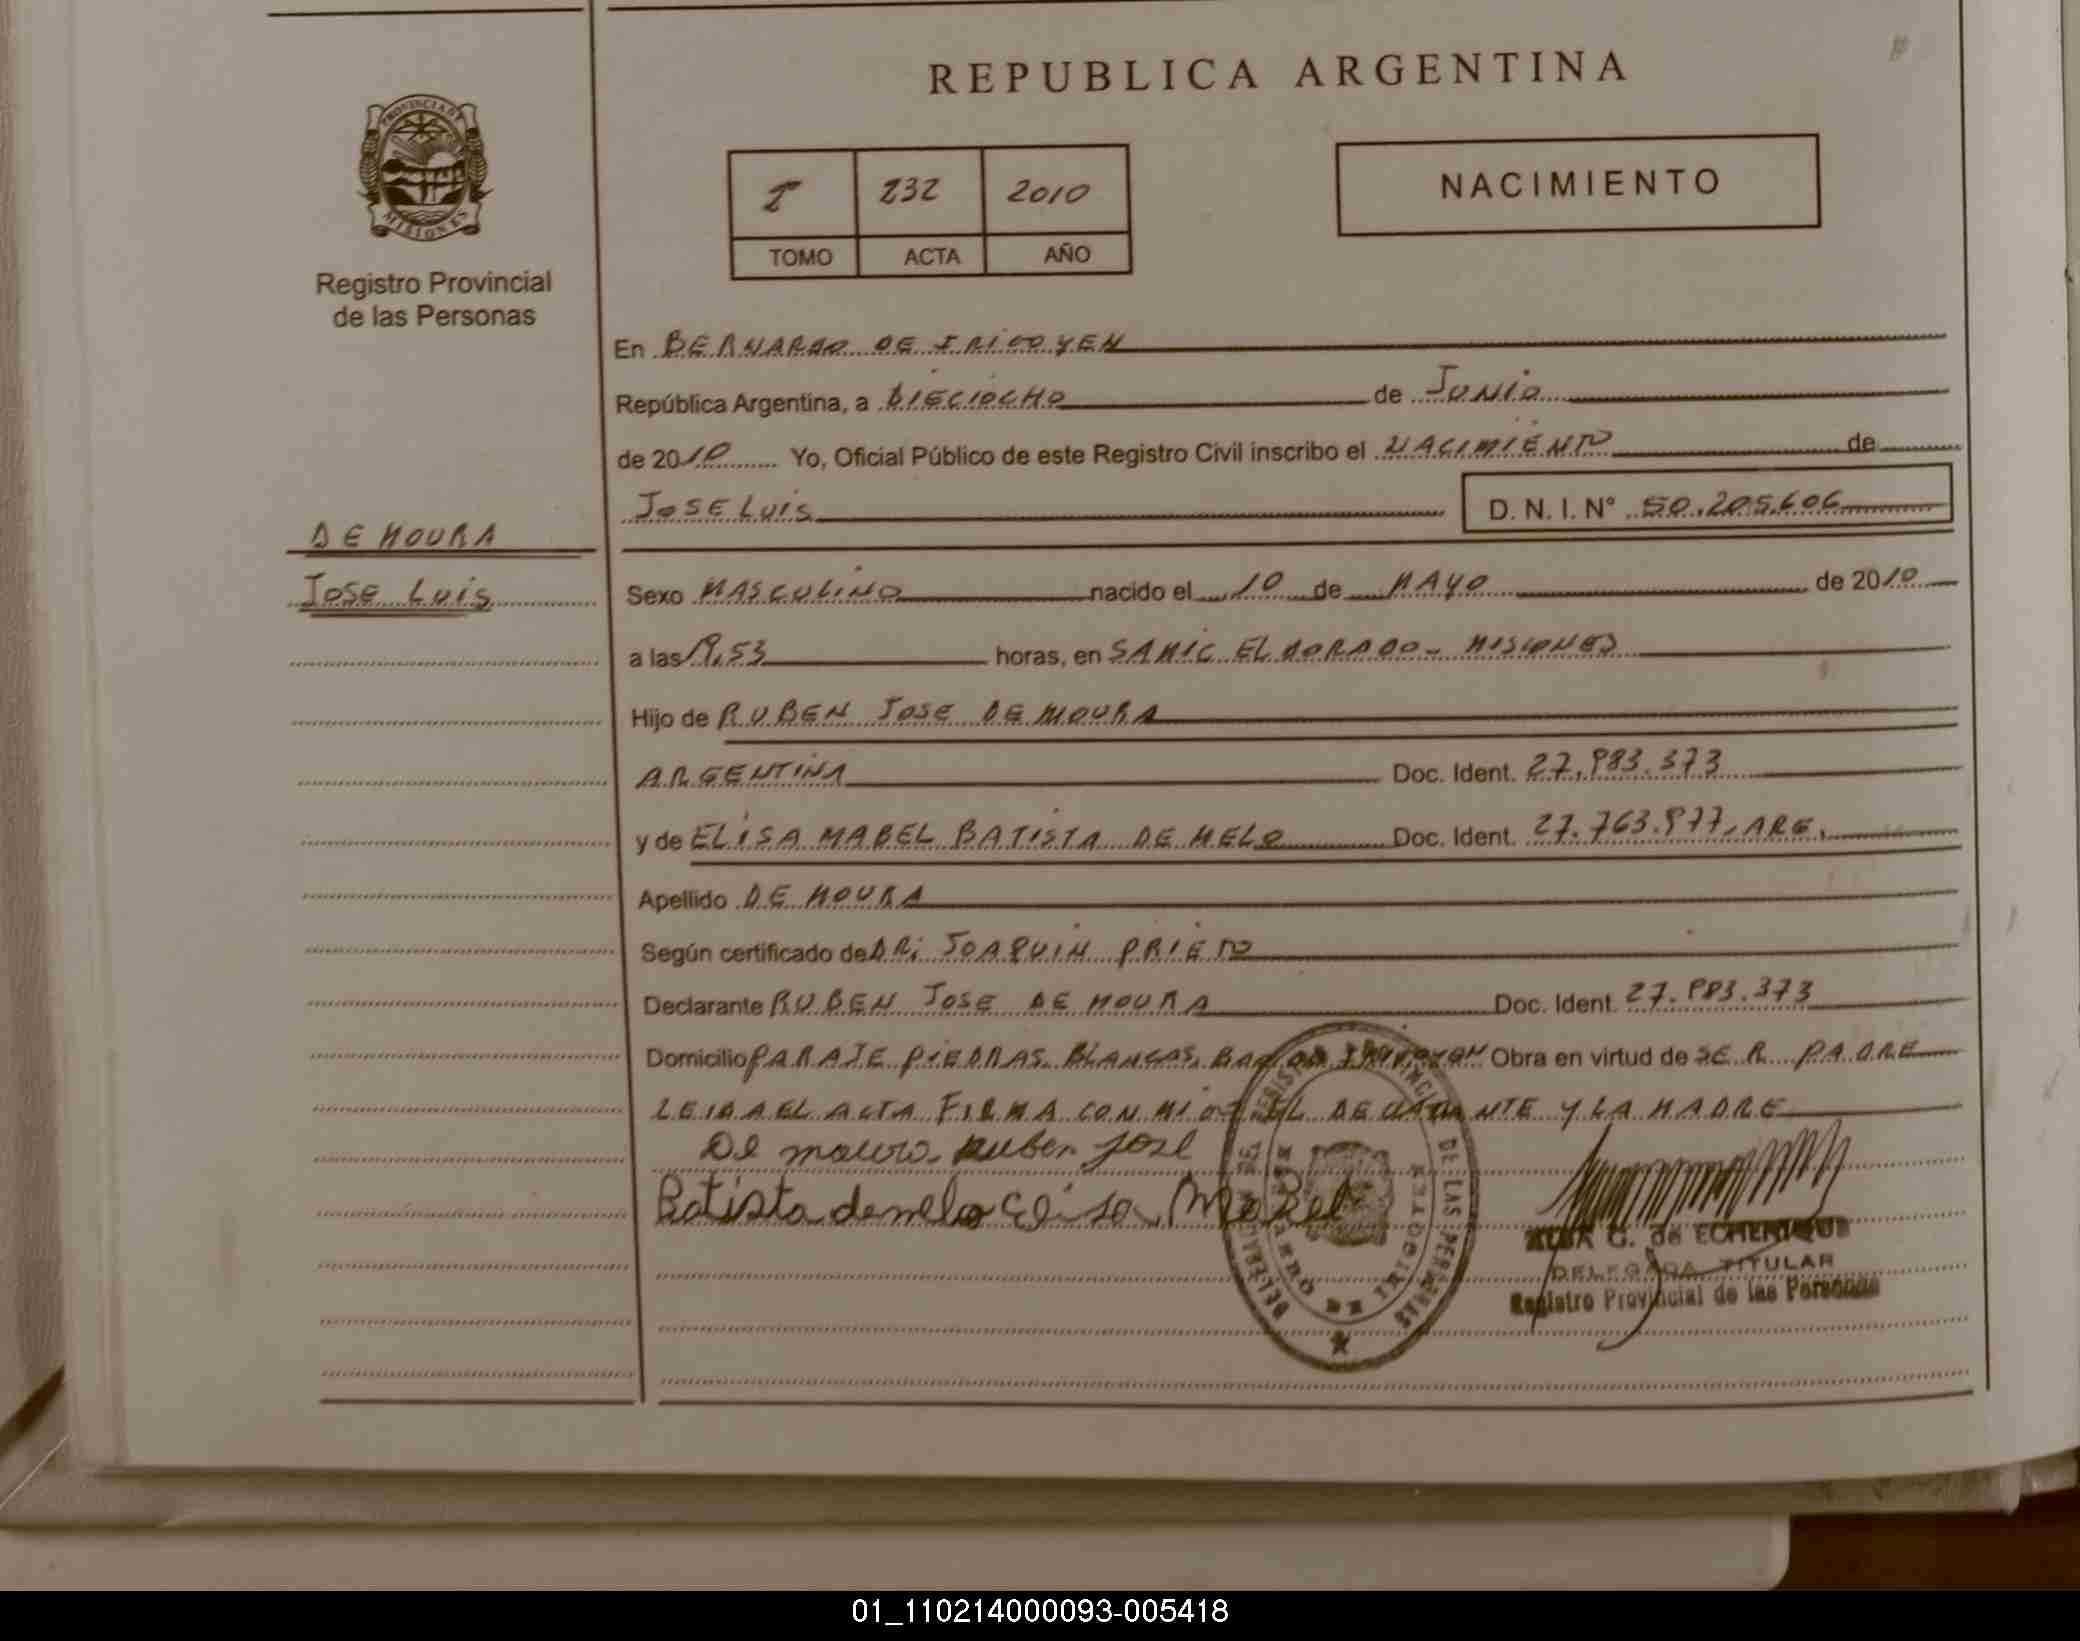 REPUBLICA ARGENTINA
PROVINCIA DE
MISIONES
Registro Provincial
de las Personas
2º 232 2010
TOMO ACTA AÑO
NACIMIENTO
En BERNARDO DE IRIGOYEN
República Argentina, a DIECIOCHO de JUNIO
de 2010 Yo, Oficial Público de este Registro Civil inscribo el NACIMIENTO de
JOSE LUIS D. N. I. Nº 50.205.606
DE MOURA
JOSE LUIS
Sexo MASCULINO nacido el 10 de MAYO de 2010
a las 19,53 horas, en SAMIC ELDORADO - MISIONES
Hijo de RUBEN JOSE DE MOURA
ARGENTINA Doc. Ident. 27.983.373
y de ELISA MABEL BATISTA DE MELO Doc. Ident. 27.763.977, ARG.
Apellido DE MOURA
Según certificado de DR; JOAQUIN PRIETO
Declarante RUBEN JOSE DE MOURA Doc. Ident. 27.983.373
Domicilio PARAJE PIEDRAS BLANCAS, IRIGOYEN Obra en virtud de SER PADRE
LEIDA EL ACTA FIRMA CON MIGO EL DECLARANTE Y LA MADRE
De moura ruben jose
Batista demelo Elisa Mabel
ALBA G. de ECHENIQUE
DELEGADA TITULAR
Registro Provincial de las Personas
01_110214000093-005418